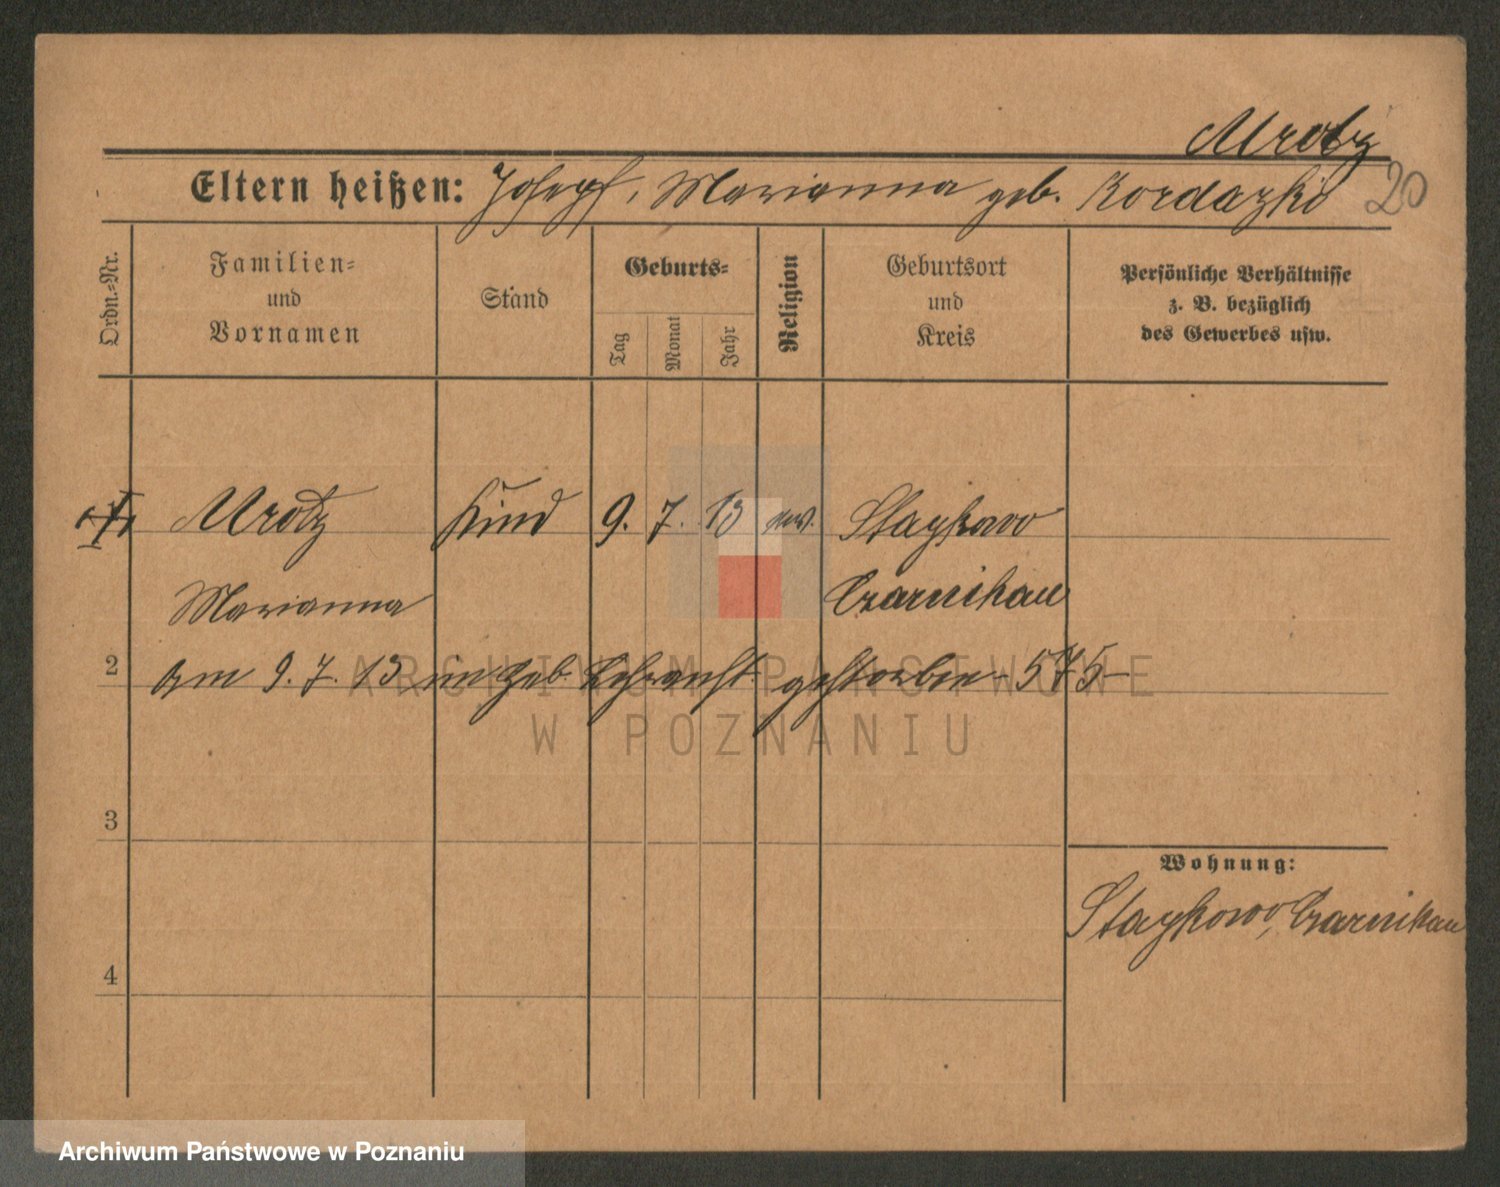 Mrotz
Eltern heißen: Joseph, Marianna geb. Kordazki 20
Ordn.-Nr.
Familien-
und
Vornamen
Stand
Geburts-
Tag
Monat
Jahr
Religion
Geburtsort
und
Kreis
Persönliche Verhältnisse
z. B. bezüglich
des Gewerbes usw.
Mrotz Kind 9. 7. 13 Staykowo
Marianna Czarnikau
2 am 9. 7. 13 in geb. gestorben - 575 -
ARCHIWUM PAŃSTWOWE
W POZNANIU
3
Wohnung:
Staykowo, Czarnikau
4
Archiwum Państwowe w Poznaniu